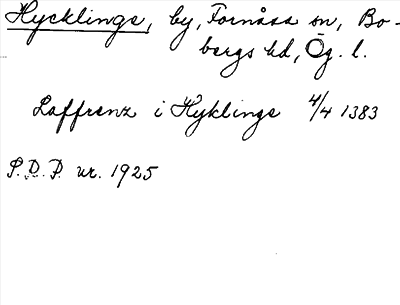 Hycklinge, by, Fornåsa sn, Bo-
bergs hd, Ög. l.
Laffrenz i Hyklinge 4/4 1383
S.D.P. nr. 1925